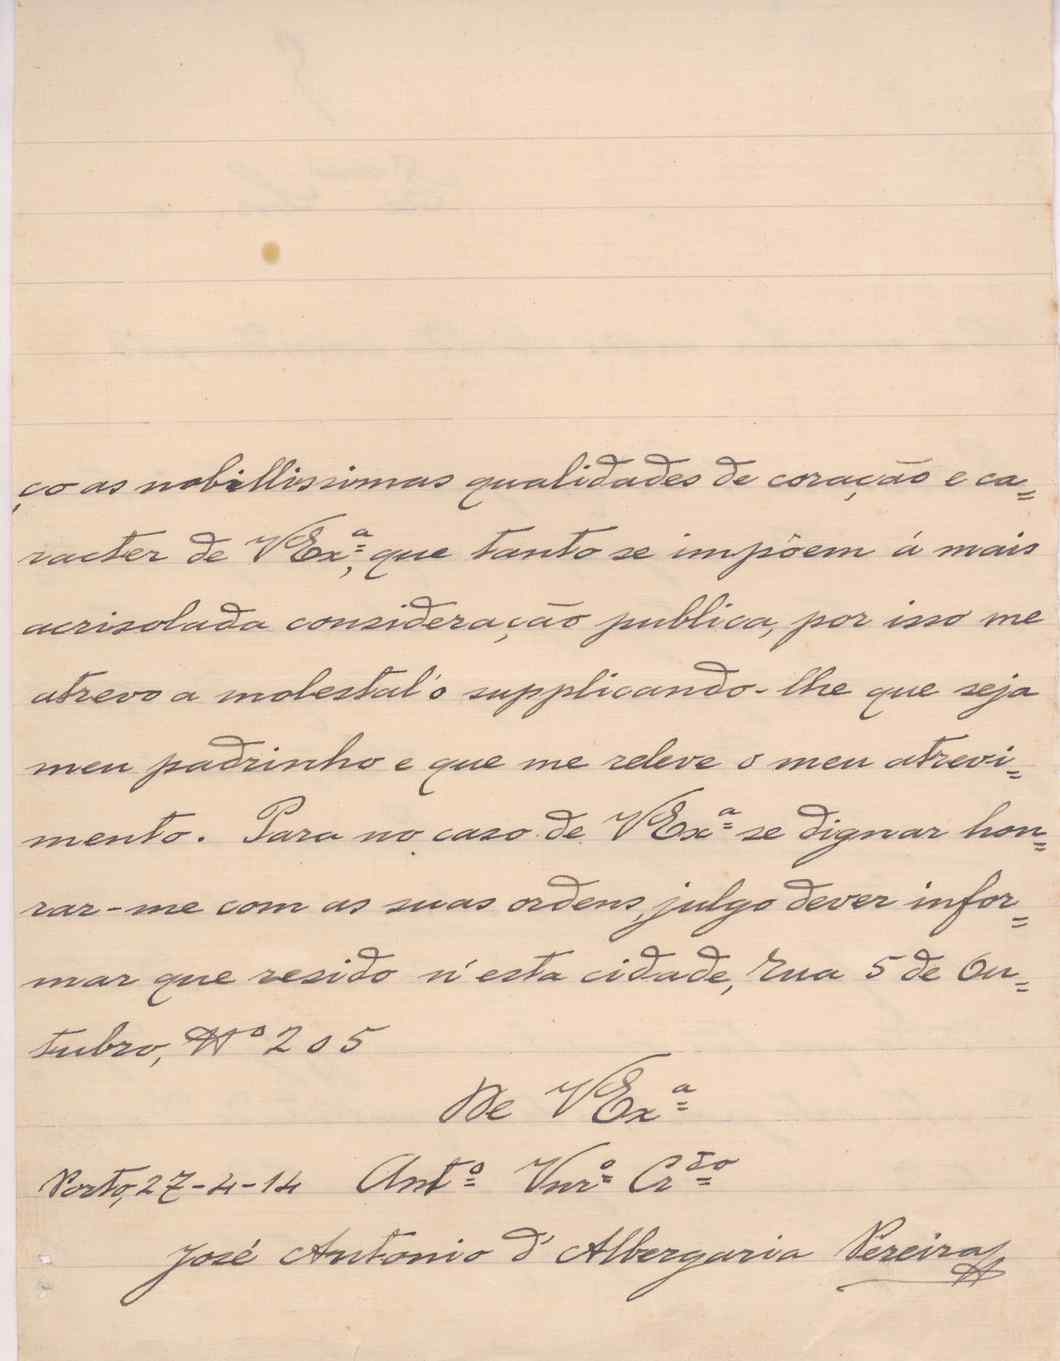 ço as nobillissimas qualidades de coração e ca=
racter de VExª, que tanto se impõem á mais
acrisolada consideração publica, por isso me
atrevo a molestal'o supplicando-lhe que seja
meu padrinho e que me releve o meu atrevi=
mento. Para no caso de VExª se dignar hon=
rar-me com as suas ordens, julgo dever infor=
mar que resido n'esta cidade, rua 5 de Ou=
tubro, Nº 205
De VExª
Porto, 27-4-14 Antº Vnrº Crdo
José Antonio d'Albergaria Pereira